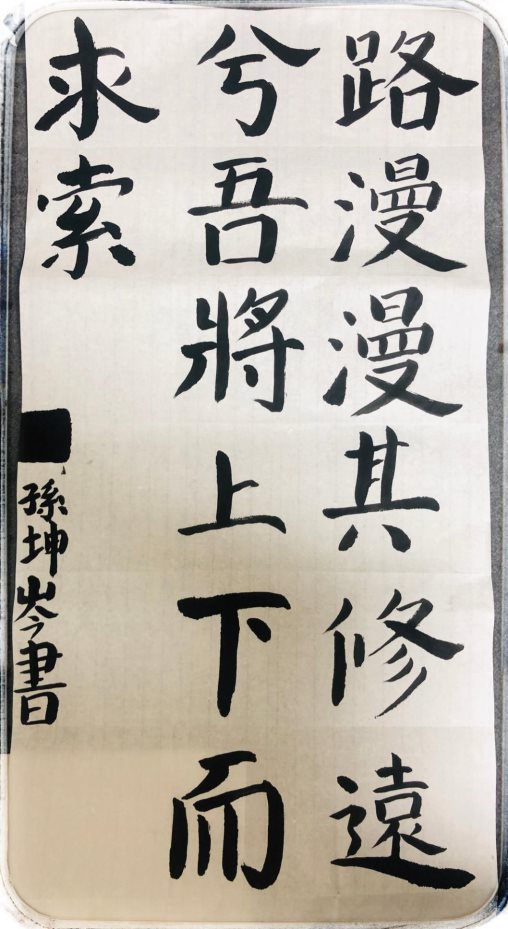 路漫漫其修遠
兮吾將上下而
求索
孫坤岑書